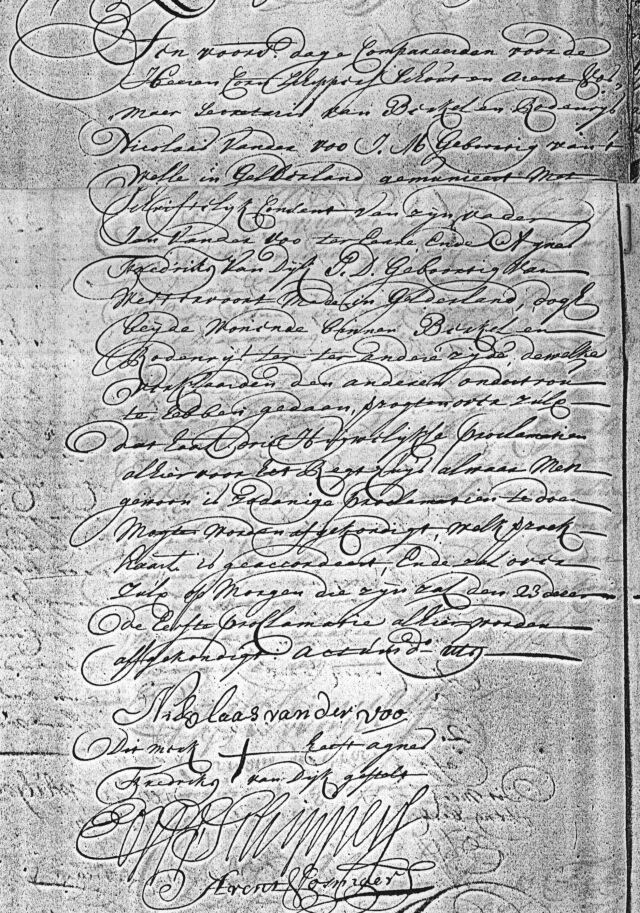 Ten voorsz. dage Compareerden voor de
Heeren Schippers Schout en Arent
Secretaris van Berkel en Rodenrijs
Nicolaas vander Voo J. M. Geboortig van 't
in Gelderland gemunieert Met
Schriftelijk Consent van zijn vader
Jan vander Voo ter Eende Agnes
Fredriks van Dijk J. D. Geboortig van
Mede in Gelderland, dogh
beijde wonende binnen Berkel en
Rodenrijs ter andere zijde, dewelke
verklaarden den anderen ondertrou
te hebben gedaan, over zulx
dat haar drie Huwelijkse proclamatien
alhier voor het Regthuijs alwaar Men
gewoon is zodanige proclamatien te doen
Mogte worden afgekondigt, welk
is geaccordeert, Ende zal over
zulx op Morgen die zijn zal den 23 deeser
de Eerste proclamatie alhier worden
affgekondigt. Actum
Nicolaas van der Voo
Dit merk + heeft agnes
Fredriks van Dijk gestelt
Schippers
Arent